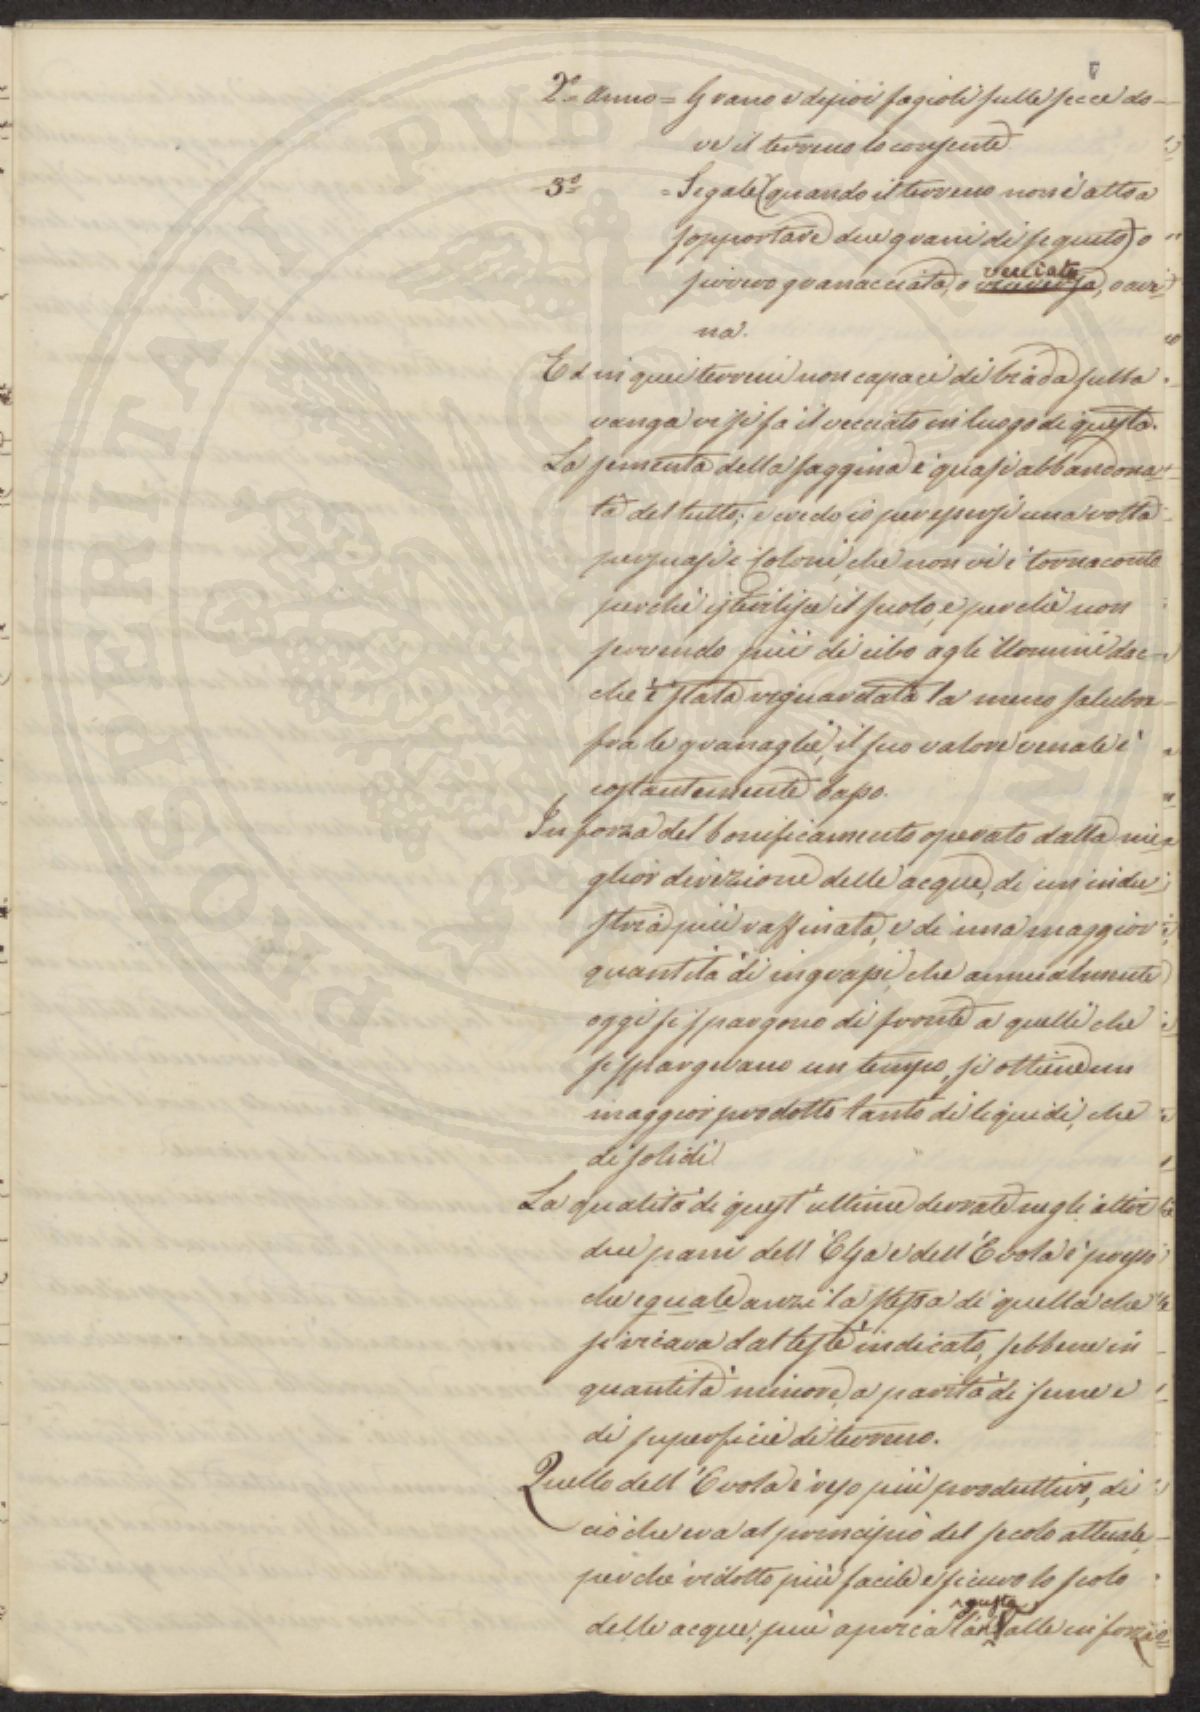 2.º Anno = Grano e dipoi fagioli sulle secce do-
ve il terreno lo consente.
3.º = Segale (quando il terreno non è atto a
sopportare due grani di seguito) o
pivvero granacciata, o vecciata, o ave-
na.
Ed in quei terreni non capaci di biada sulla
vanga vi si fa il vecciato in luogo di questa.
La sementa della saggina è quasi abbandona-
ta del tutto; e credo io per essersi una volta
persuasi i Coloni, che non vi è tornaconto
perchè isterilisce il suolo, e perchè non
servendo più di cibo agli Uomini dac-
chè è stata riguardata la meno salubre
fra le granaglie, il suo valore venale è
costantemente basso.
In forza del bonificamento operato dalla mi-
glior direzione delle acque, di un'indu-
stria più raffinata, e di una maggior
quantità di ingrassi, che annualmente
oggi si spargono di fronte a quelli che
si spargevano un tempo, si ottiene un
maggior prodotto tanto di liquidi, che
di solidi.
La qualità di quest'ultime derrate negli altri
due piani dell'Elsa e dell'Evola è presso
che eguale anzi la stessa di quella che
si ricava dal testè indicato, sebbene in
quantità minore, a parità di seme e
di superficie di terreno.
Quello dell'Evola è reso più produttivo, di
ciò che era al principio del secolo attuale,
perchè ridotto più facile e sicuro lo scolo
delle acque, più aprica l'angusta valle in forza